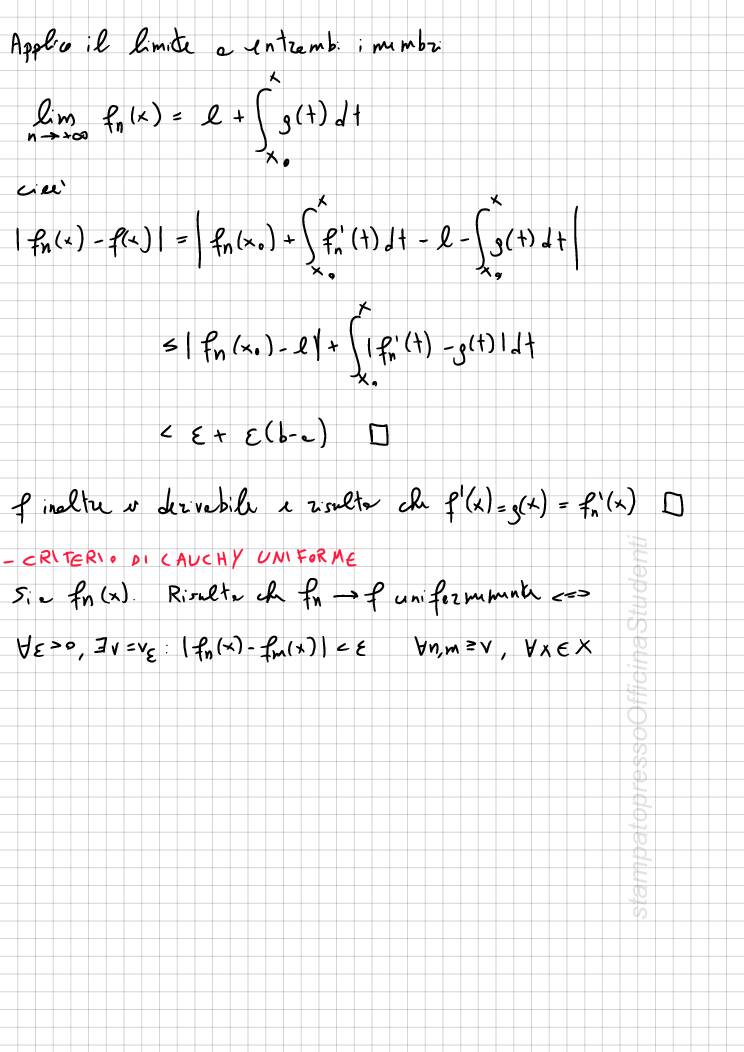 Applico il limite a entrambi i membri
lim n→+∞ fn(x) = l + ∫_{x₀}^{x} g(t) dt
cioè
|fn(x) - f(x)| = | fn(x₀) + ∫_{x₀}^{x} fn'(t) dt - l - ∫_{x₀}^{x} g(t) dt |
≤ | fn(x₀) - l | + ∫_{x₀}^{x} | fn'(t) - g(t) | dt
< ε + ε(b-a) □
f inoltre è derivabile e risulta che f'(x) = g(x) = fn'(x) □
- CRITERIO DI CAUCHY UNIFORME
Sia fn(x). Risulta che fn → f uniformemente <=>
∀ε>0, ∃ν=νε : |fn(x) - fm(x)| < ε ∀n,m ≥ ν, ∀x ∈ X
stampatopressoOfficinaStudenti